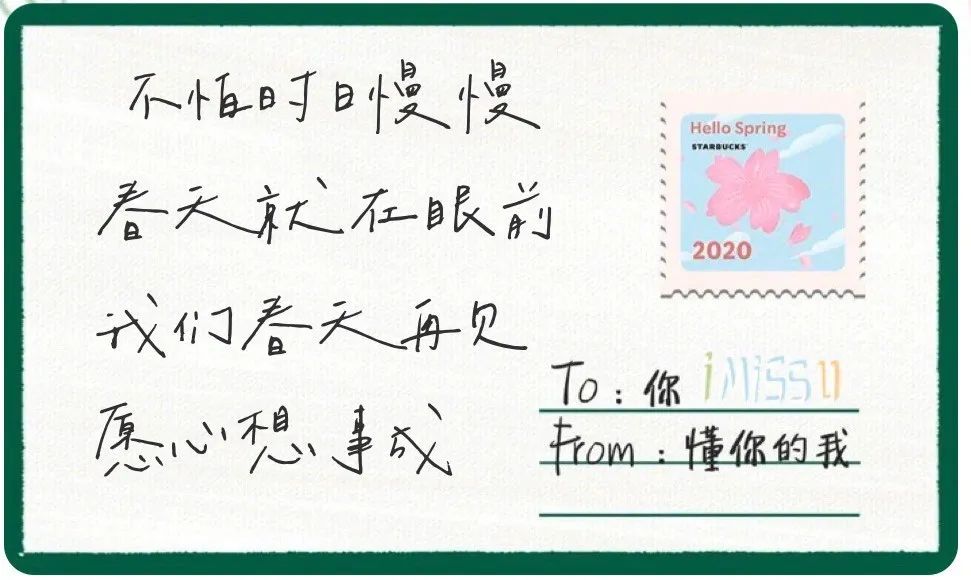 不怕时日慢慢
春天就在眼前
我们春天再见
愿心想事成
Hello Spring
STARBUCKS
2020
To：你 i Miss U
From：懂你的我